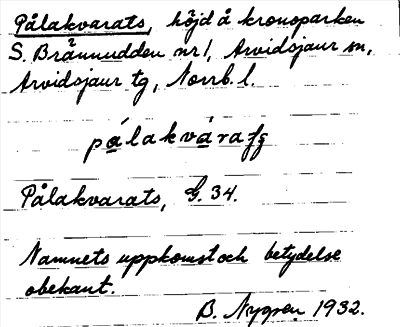 Pålakvarats, höjd å kronoparken
S. Brännudden nr 1, Arvidsjaur sn,
Arvidsjaur tg, Norrb. l.
Pålakvarats, G. 34.
Namnets uppkomst och betydelse
obekant.
B. Nygren 1932.